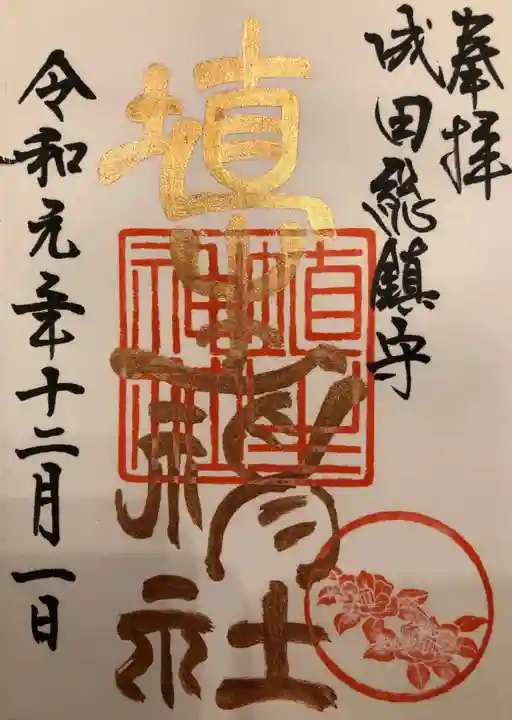 奉拝
成田総鎮守
埴生神社
埴生神社
令和元年十二月一日